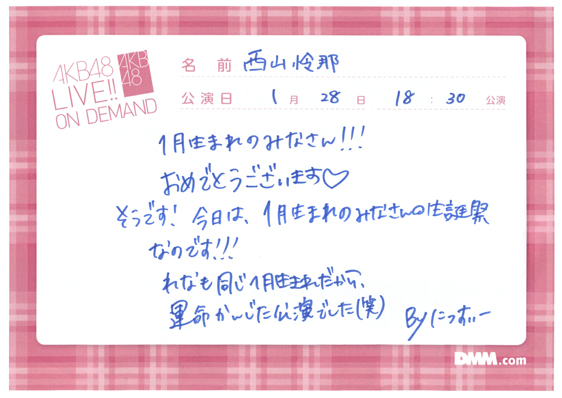 AKB48
LIVE!!
ON DEMAND
AKB
48
名 前 西山怜那
公演日 1 月 28 日 18 : 30 公演
1月生まれのみなさん!!!
おめでとうございます♡
そうです! 今日は、1月生まれのみなさんの生誕祭
なのです!!!
れなも同じ1月生まれだから、
運命かんじた公演でした(笑)
Byにっすぃー
DMM.com